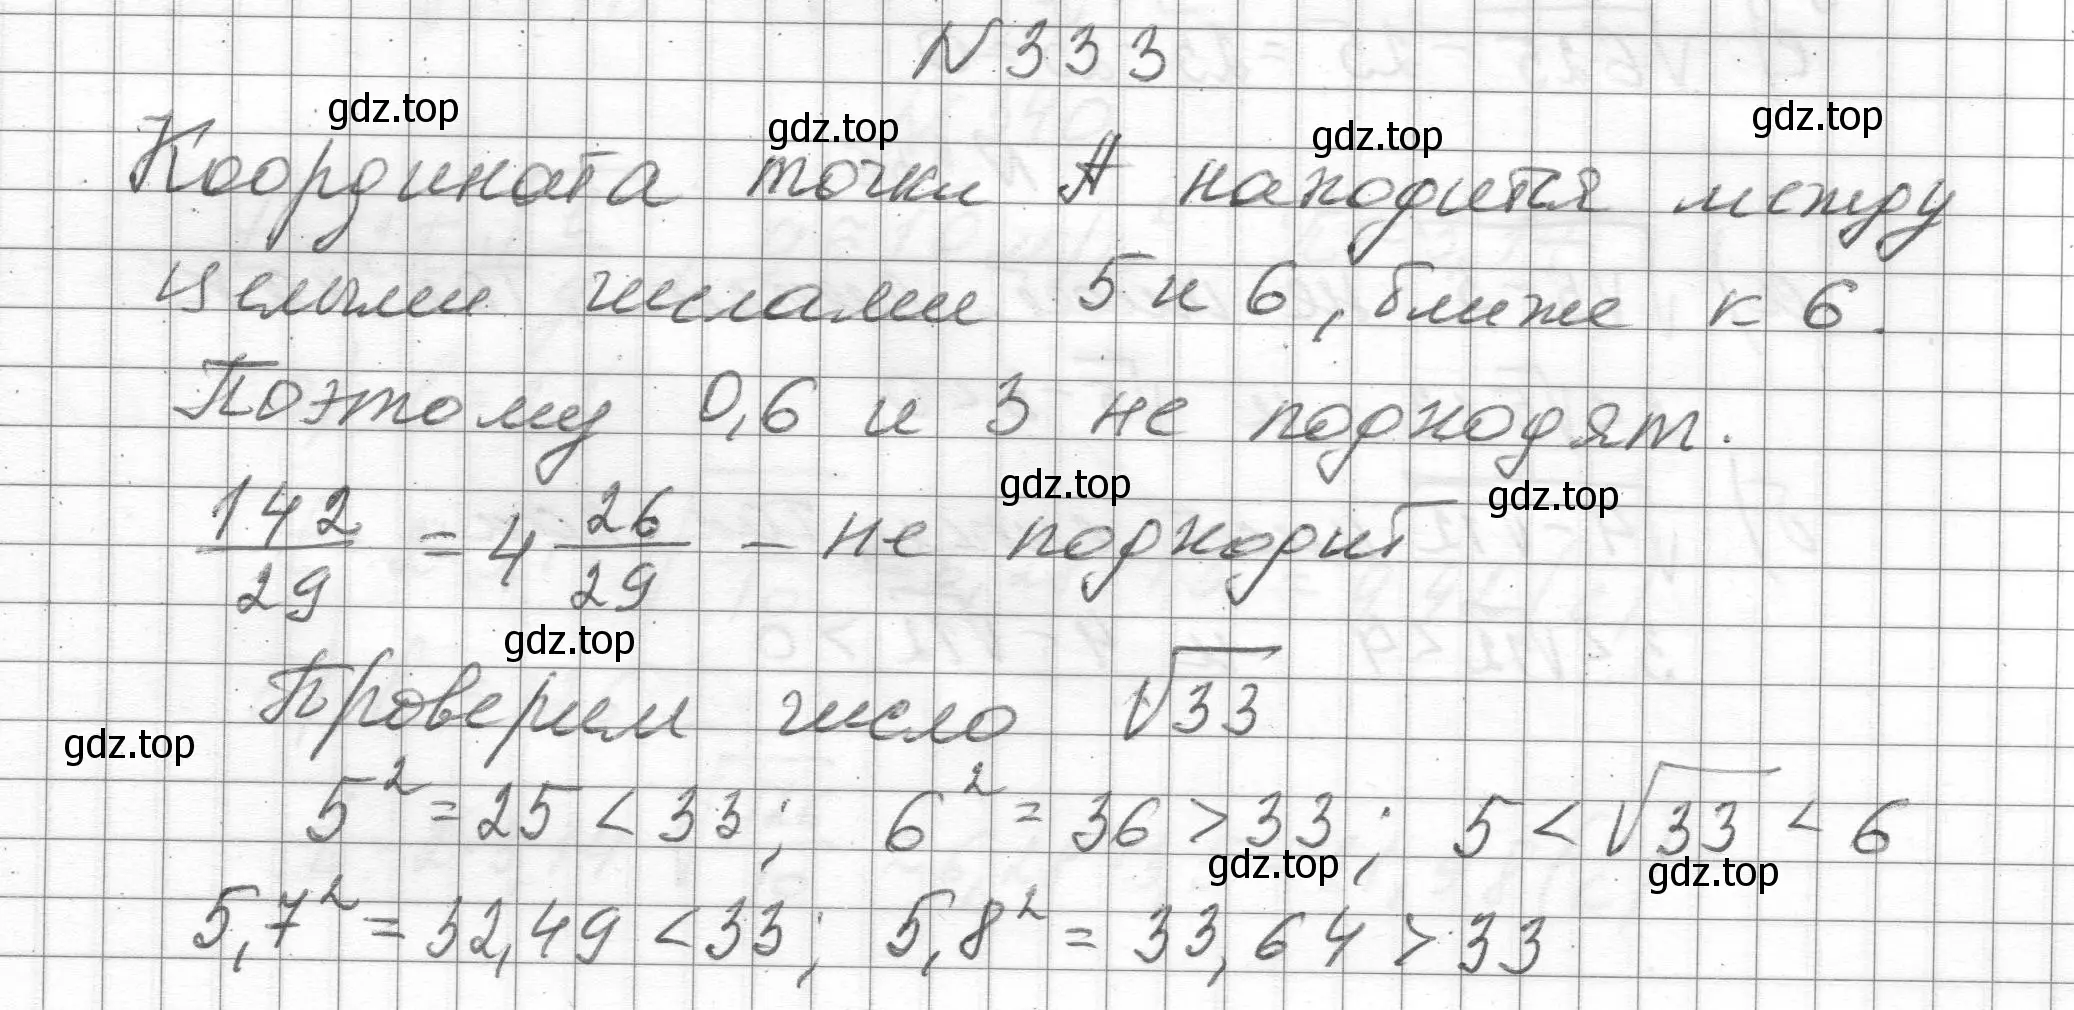 N 333
gdz.top gdz.top gdz.top gdz.top
Координата точки А находится между
целыми числами 5 и 6, ближе к 6.
Поэтому 0,6 и 3 не подходят.
gdz.top gdz.top
142/29 = 4 26/29 – не подходит
gdz.top
Проверим число √33
gdz.top
5² = 25 < 33; 6² = 36 > 33; 5 < √33 < 6
gdz.top gdz.top
5,7² = 32,49 < 33; 5,8² = 33,64 > 33